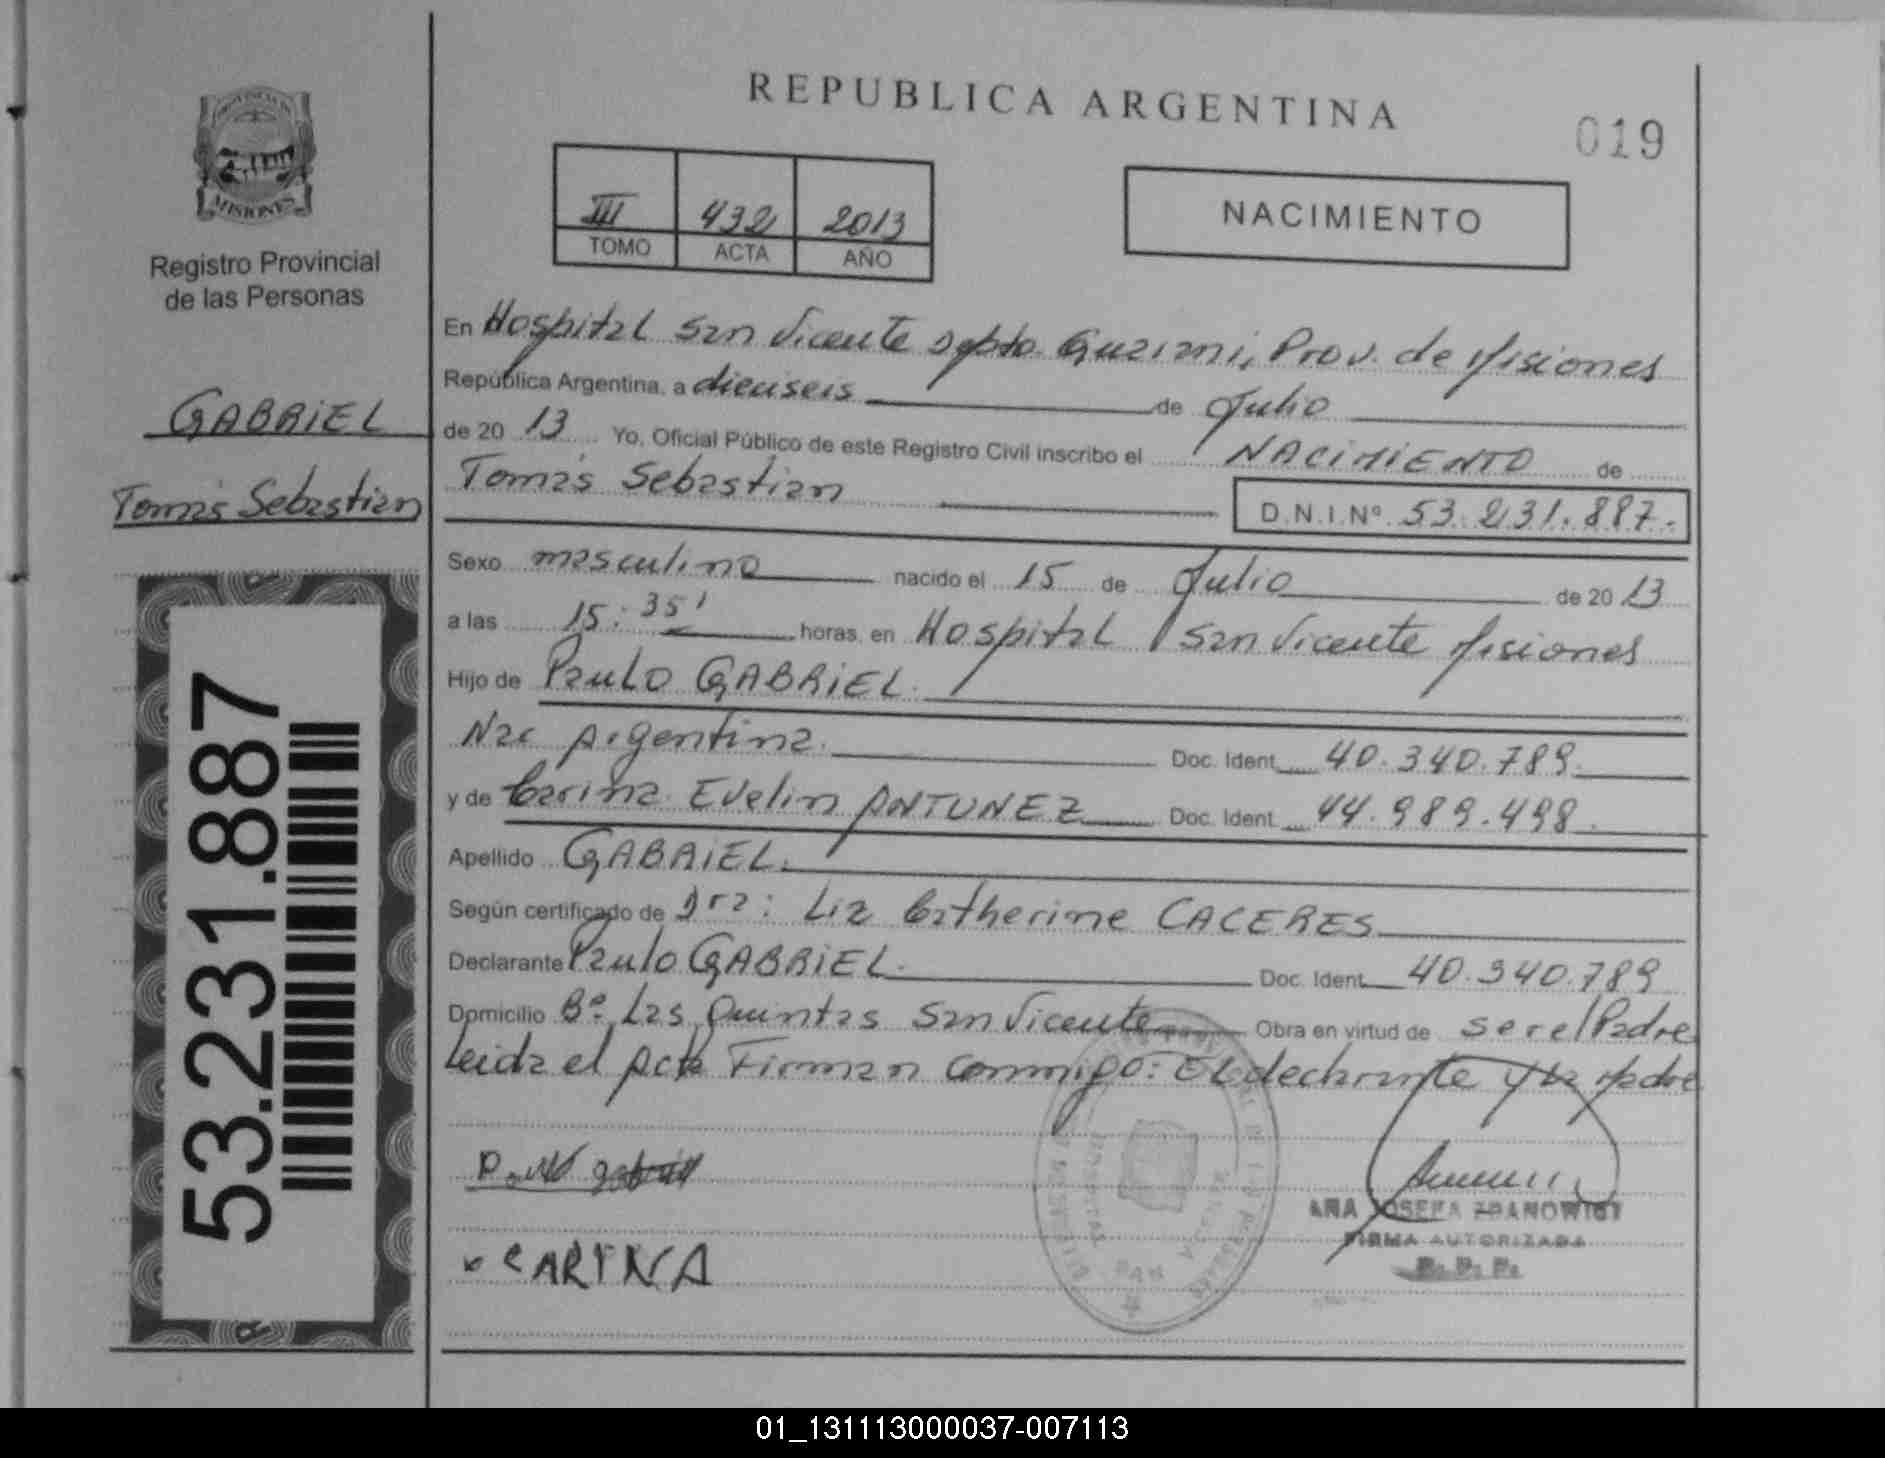 REPUBLICA ARGENTINA
019
PROVINCIA DE
MISIONES
Registro Provincial
de las Personas
III 432 2013
TOMO ACTA AÑO
NACIMIENTO
GABRIEL
Tomás Sebastian
53.231.887
En Hospital San Vicente Dpto. Guarani, Prov. de Misiones
República Argentina, a dieciseis de Julio
de 20 13 Yo, Oficial Público de este Registro Civil inscribo el NACIMIENTO de
Tomás Sebastian
D.N.I.Nº 53.231.887.
Sexo masculino nacido el 15 de Julio de 20 13
a las 15:35' horas, en Hospital San Vicente Misiones
Hijo de Paulo GABRIEL.
Nac Argentina. Doc. Ident. 40.340.789.
y de Carina Evelin ANTUNEZ Doc. Ident. 44.989.498.
Apellido GABRIEL.
Según certificado de Dra: Liz Catherine CACERES
Declarante Paulo GABRIEL. Doc. Ident. 40.340.789
Domicilio Bº Las Quintas San Vicente Obra en virtud de ser el Padre
Leida el Acta Firman conmigo: El declarante y la Madre
CARINA
ANA JOSEFA ZDANOWICZ
FIRMA AUTORIZADA
R. P. P.
HOSPITAL
SAN
VICENTE
01_131113000037-007113